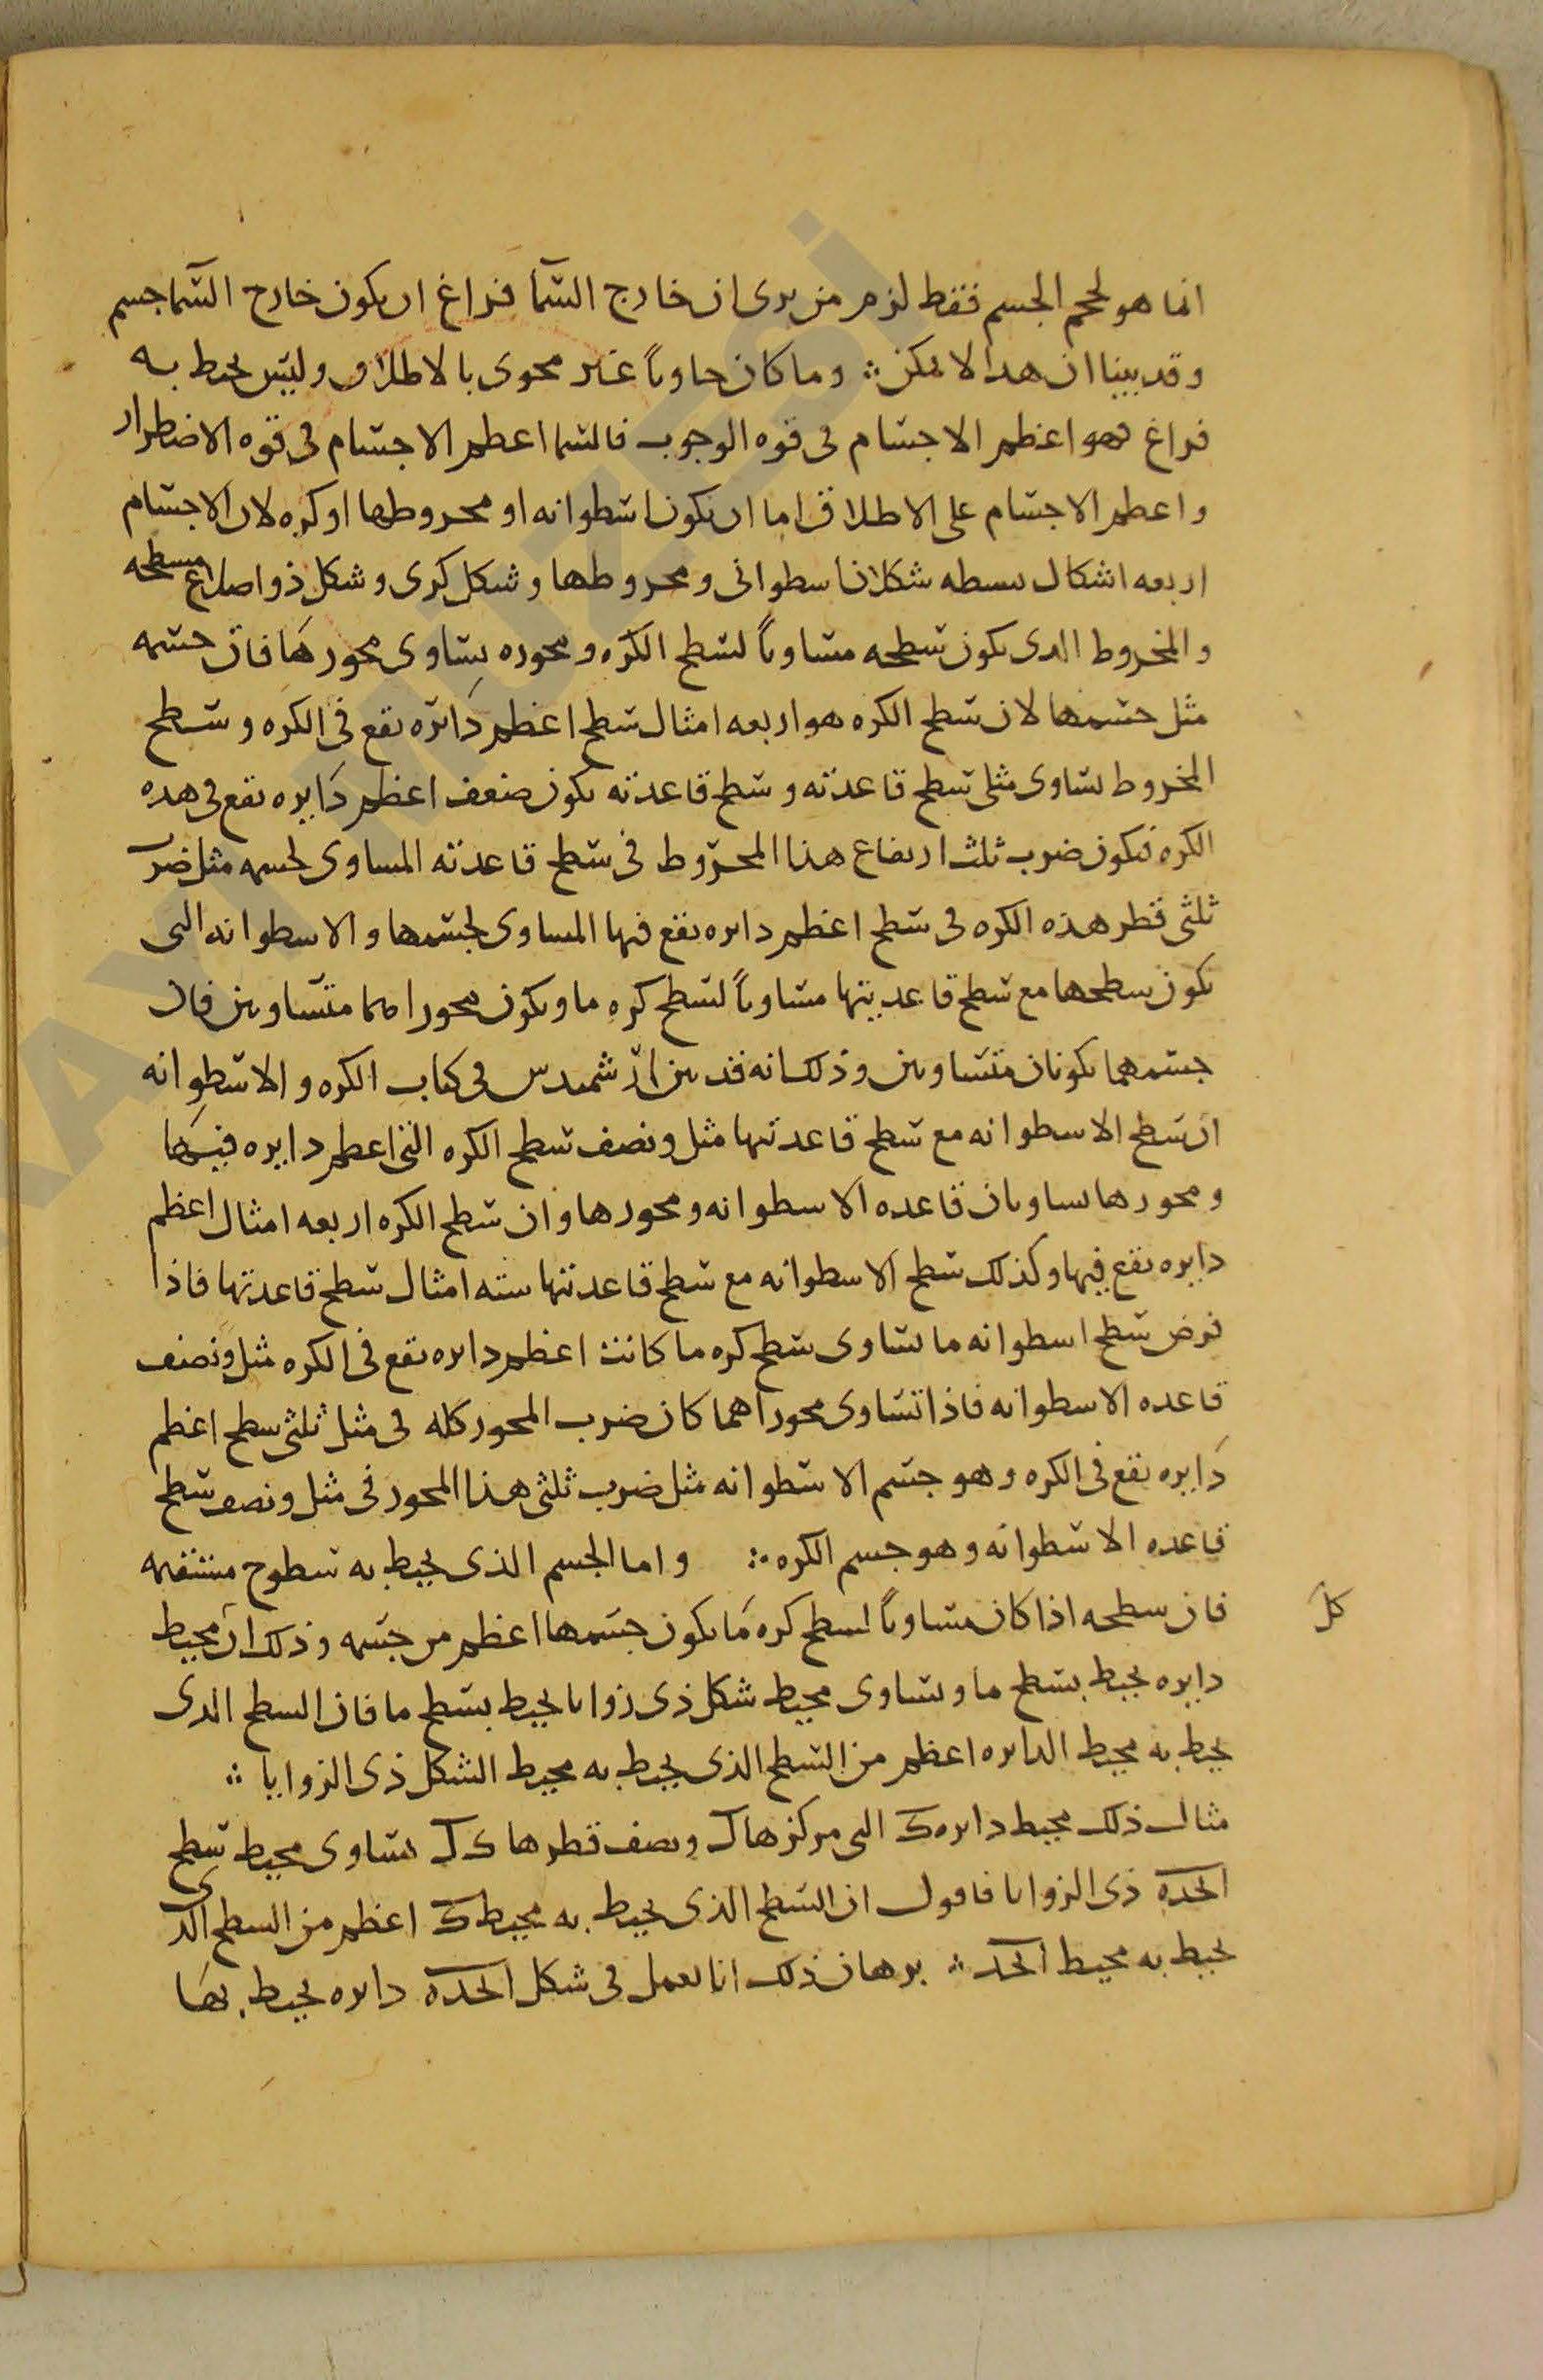 انما هو لحجم الجسم فقط لزم من يرى ان خارج السما فراغ ان يكون خارج السما جسم
وقد بينا ان هذا لا يمكن ؞ وما كان حاوياً غير محوى بالاطلاق وليس يحيط به
فراغ فهو اعظم الاجسام فى قوه الوجوب فالسما اعظم الاجسام فى قوه الاضطرار
واعظم الاجسام على الاطلاق اما ان يكون اسطوانه او مخروطها او كره لان الاجسام
اربعه اشكال بسيطه شكلان اسطوانى ومخروطها وشكل كرى وشكل ذو اضلاع مسطحه
والمخروط الذى يكون سطحه مساوياً لسطح الكره ومحوره يساوى محورها فان جسمه
مثل جسمها لان سطح الكره هو اربعه امثال سطح اعظم دائره تقع فى الكره وسطح
المخروط يساوى مثلى سطح قاعدته وسطح قاعدته يكون ضعف اعظم دايره تقع فى هذه
الكره فيكون ضرب ثلث ارتفاع هذا المخروط فى سطح قاعدته المساوى لجسمه مثل ضرب
ثلثى قطر هذه الكره فى سطح اعظم دايره تقع فيها المساوى لجسمها والاسطوانه التى
يكون سطحها مع سطح قاعديتها مساوياً لسطح كره ما ويكون محوراهما متساويين فان
جسمهما يكونان متساويين وذلك انه قد بين ارشميدس فى كتاب الكره والاسطوانه
ان سطح الاسطوانه مع سطح قاعدتيها مثل ونصف سطح الكره التى اعظم دايره فيها
ومحورها يساويان قاعده الاسطوانه ومحورها وان سطح الكره اربعه امثال اعظم
دايره تقع فيها وكذلك سطح الاسطوانه مع سطح قاعدتها سته امثال سطح قاعدتها فاذا
فرض سطح اسطوانه ما يساوى سطح كره ما كانت اعظم دايره تقع فى الكره مثل ونصف
قاعده الاسطوانه فاذا تساوى محوراهما كان ضرب المحور كله فى مثل ثلثى سطح اعظم
دايره تقع فى الكره وهو جسم الاسطوانه مثل ضرب ثلثى هذا المحور فى مثل ونصف سطح
قاعده الاسطوانه وهو جسم الكره ؞ واما الجسم الذى يحيط به سطوح مستقيمه
فان سطحه اذا كان مساوياً لسطح كره ما يكون جسمها اعظم من جسمه وذلك ان محيط
دايره يحيط بسطح ما ويساوى محيط شكل ذى زوايا يحيط بسطح ما فان السطح الذى
يحيط به محيط الدايره اعظم من السطح الذى يحيط به محيط الشكل ذى الزوايا ؞
مثال ذلك محيط دايره التى مركزها ونصف قطرها يساوى محيط سطح
ذى الزوايا فاقول ان السطح الذى يحيط به محيط اعظم من السطح الذى
يحيط به محيط ؞ برهان ذلك انا نعمل فى شكل دايره يحيط بها